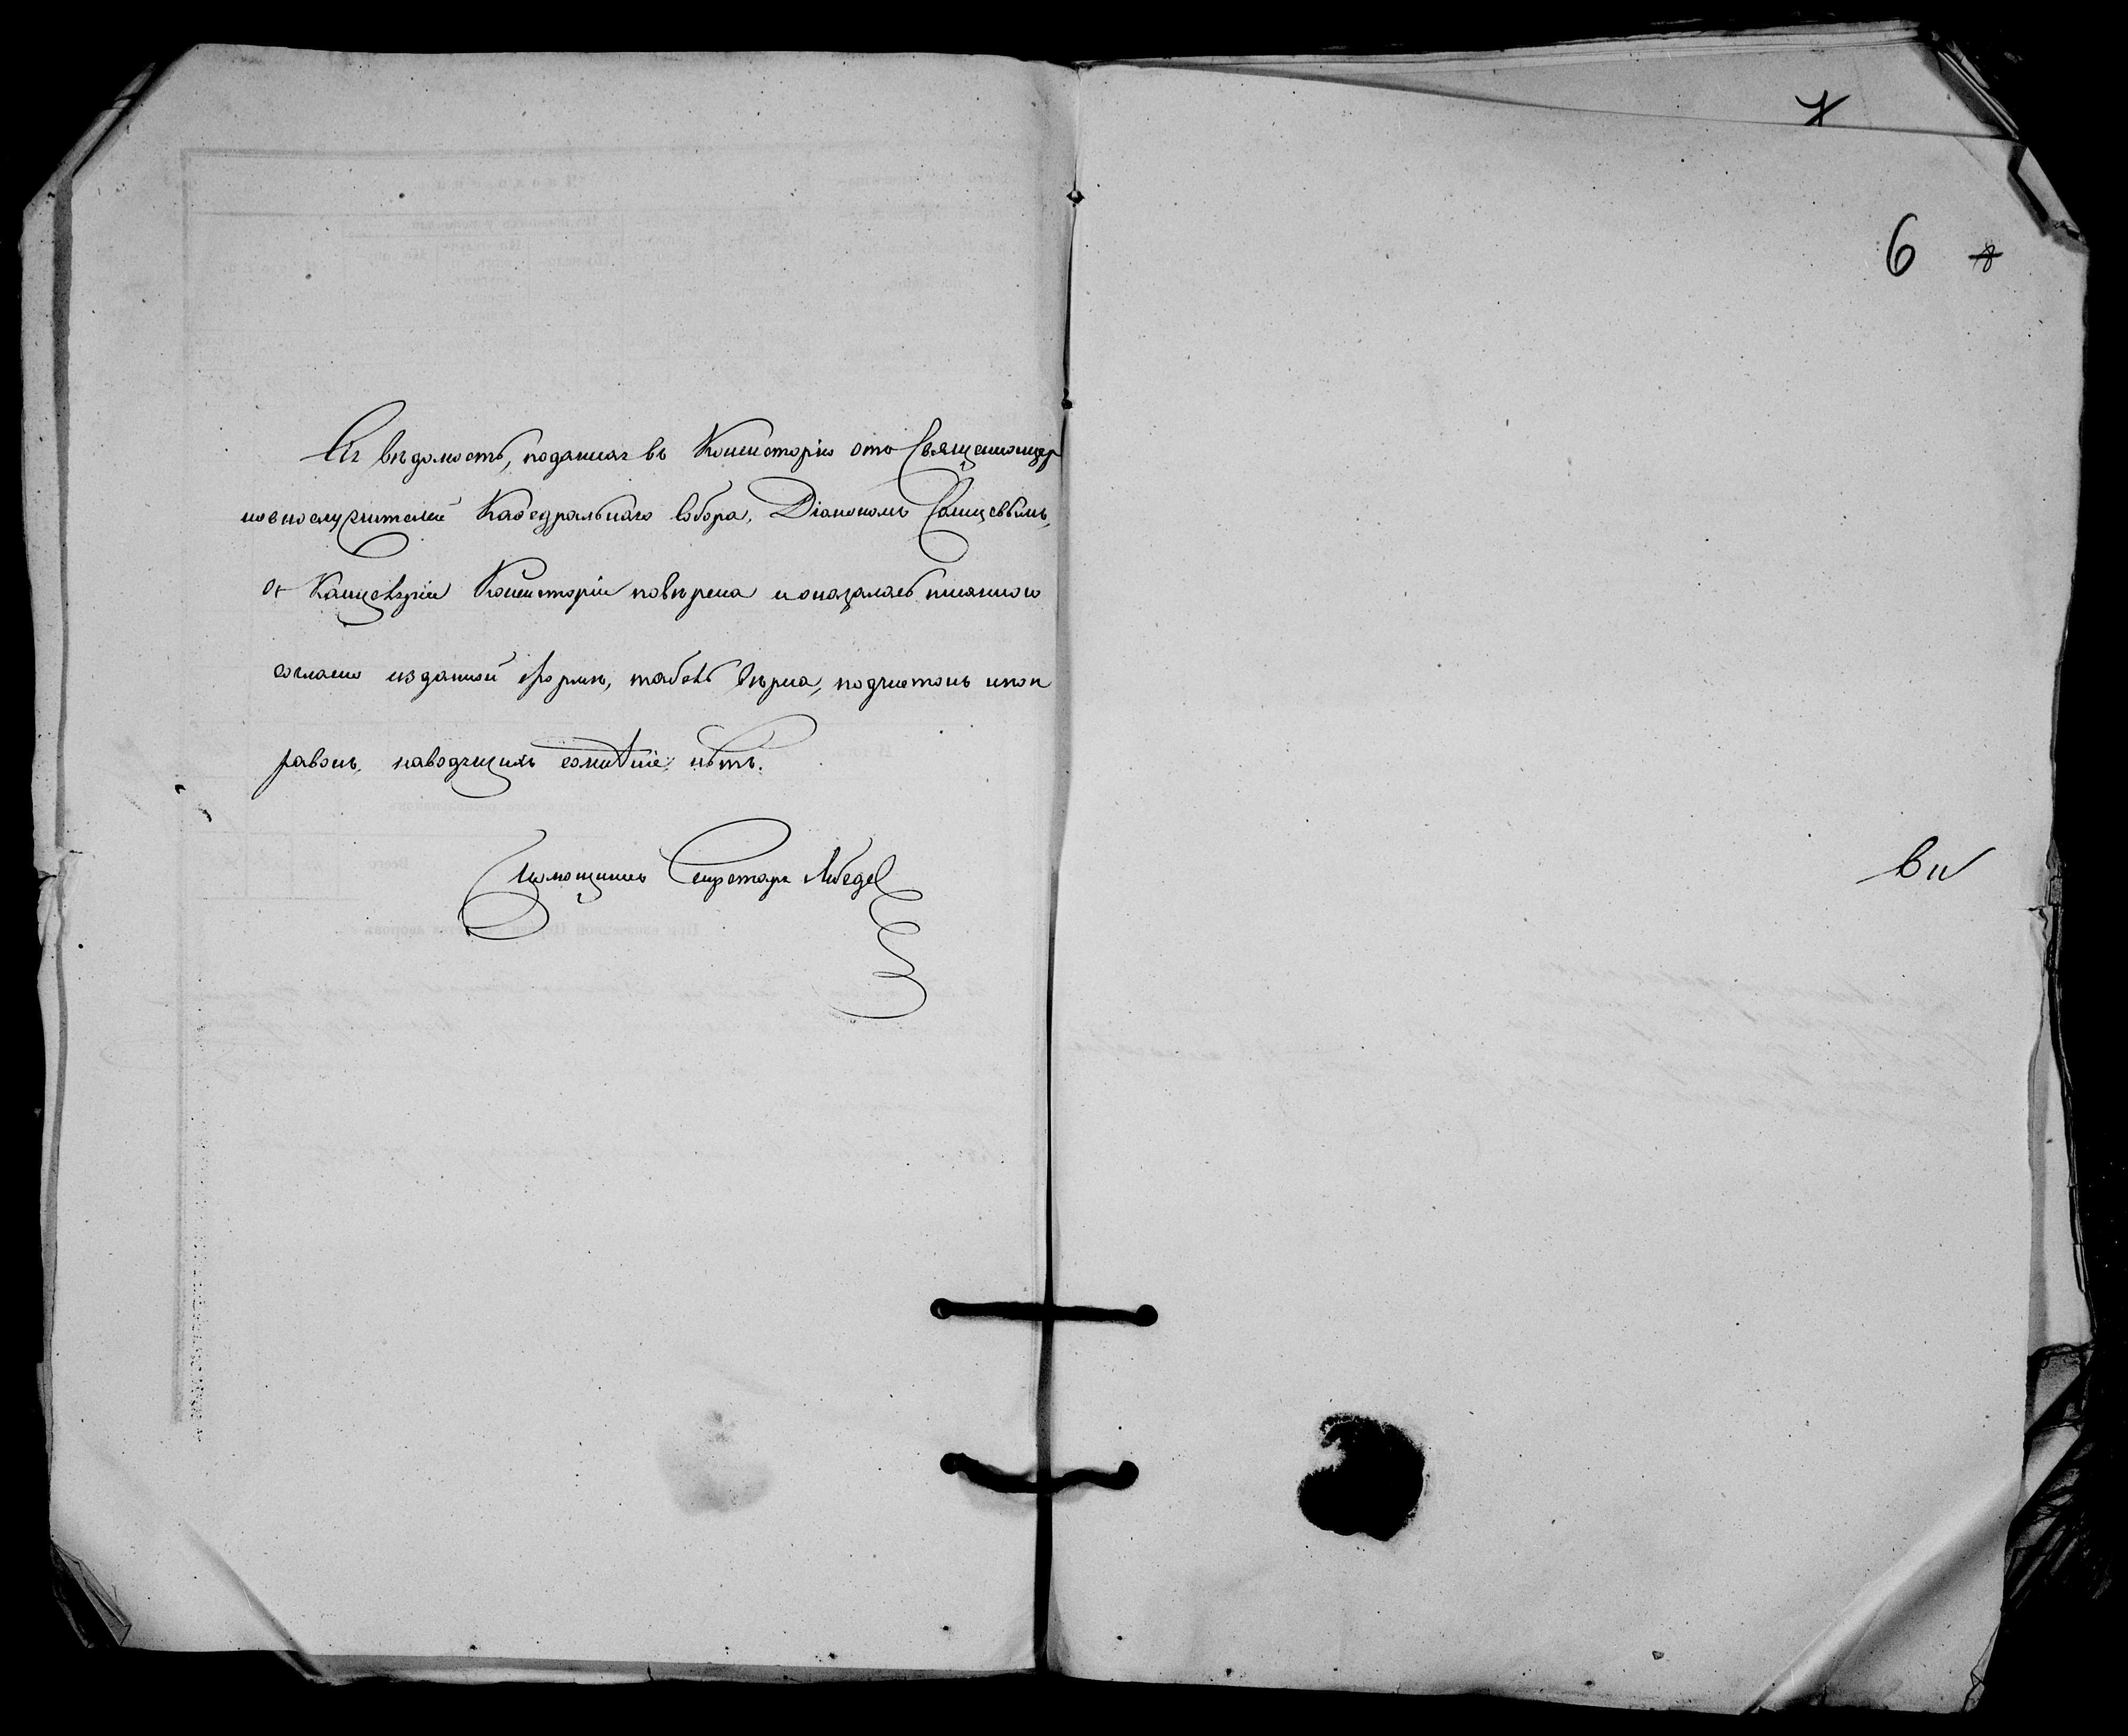 Сія вѣдомость, поданная въ Консисторію ото Священноцер
новнослужителей Каѳедральнаго Собора, Діакономъ
въ Канцеляріи Консисторіи повѣрена и оказалась писанною
согласно изданной формѣ, табель вѣрна, подчистокъ и поп
равокъ, наводящихъ сомнѣніе, нѣтъ.
Помощникъ Секретаря Лебедев
6